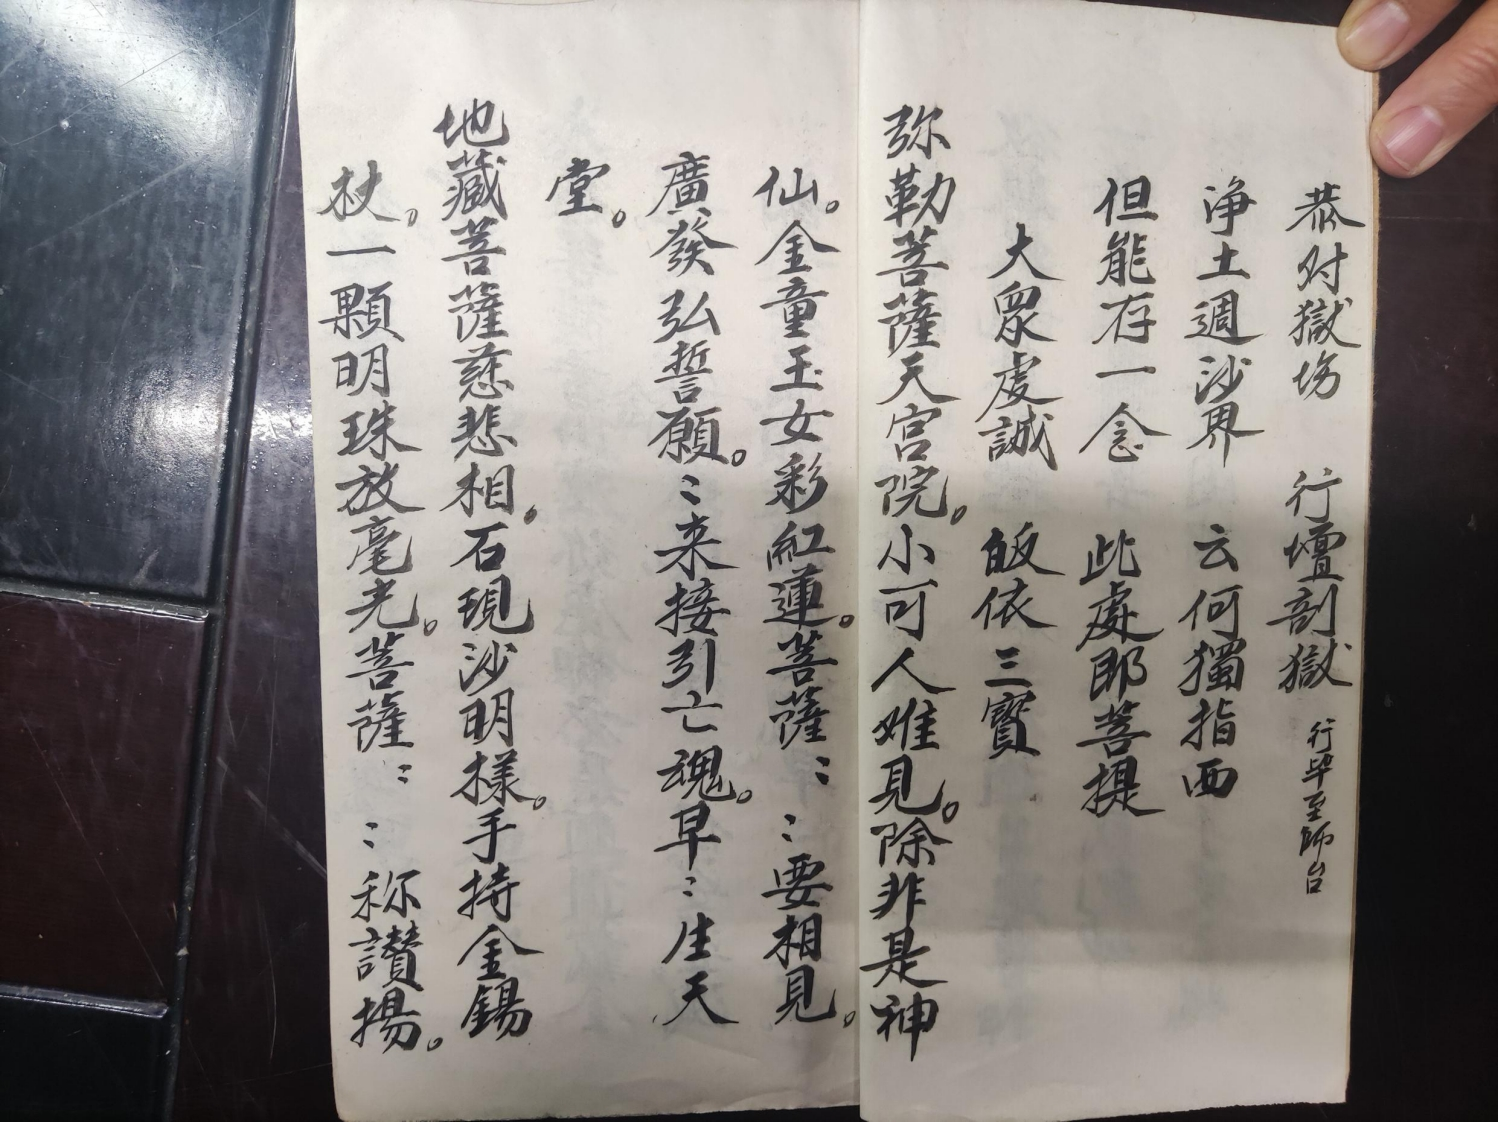 恭对獄坊 行壇剖獄 行毕至師台
净土週沙界 云何獨指西
但能存一念 此處即菩提
大眾虔誠 皈依三寶
弥勒菩薩天宫院。小可人难見。除非是神
仙。金童玉女彩紅蓮。菩薩：：要相見。
廣發弘誓願。：来接引亡魂。早：生天
堂。
地藏菩薩慈悲相。石現沙明樣。手持金錫
杖。一顆明珠放毫光。菩薩：：称讃揚。